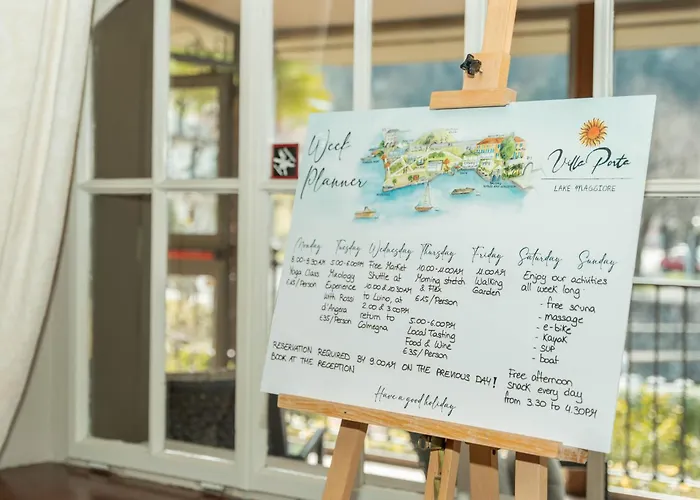 Week
Planner
Villa Porta
LAKE MAGGIORE
Monday
8.00-9.30AM
Yoga Class
€15/Person
Tuesday
5.00-6.00PM
Mixology
Experience
with Rossi
d'Angera
€35/Person
Wednesday
Free Market
Shuttle at
10.00 & 10.30AM
to Luino, at
2.00 & 3.00PM
return to
Colmegna
Thursday
10.00-11.00AM
Morning stretch
& Flex
€15/Person
5.00-6.00PM
Local Tasting
Food & Wine
€35/Person
Friday
11.00AM
Walking
Garden
Saturday Sunday
Enjoy our activities
all week long:
- free sauna
- massage
- e-bike
- kayak
- SUP
- boat
Free afternoon
snack every day
from 3.30 to 4.30PM
RESERVATION REQUIRED BY 9.00AM ON THE PREVIOUS DAY!
BOOK AT THE RECEPTION
Have a good holiday